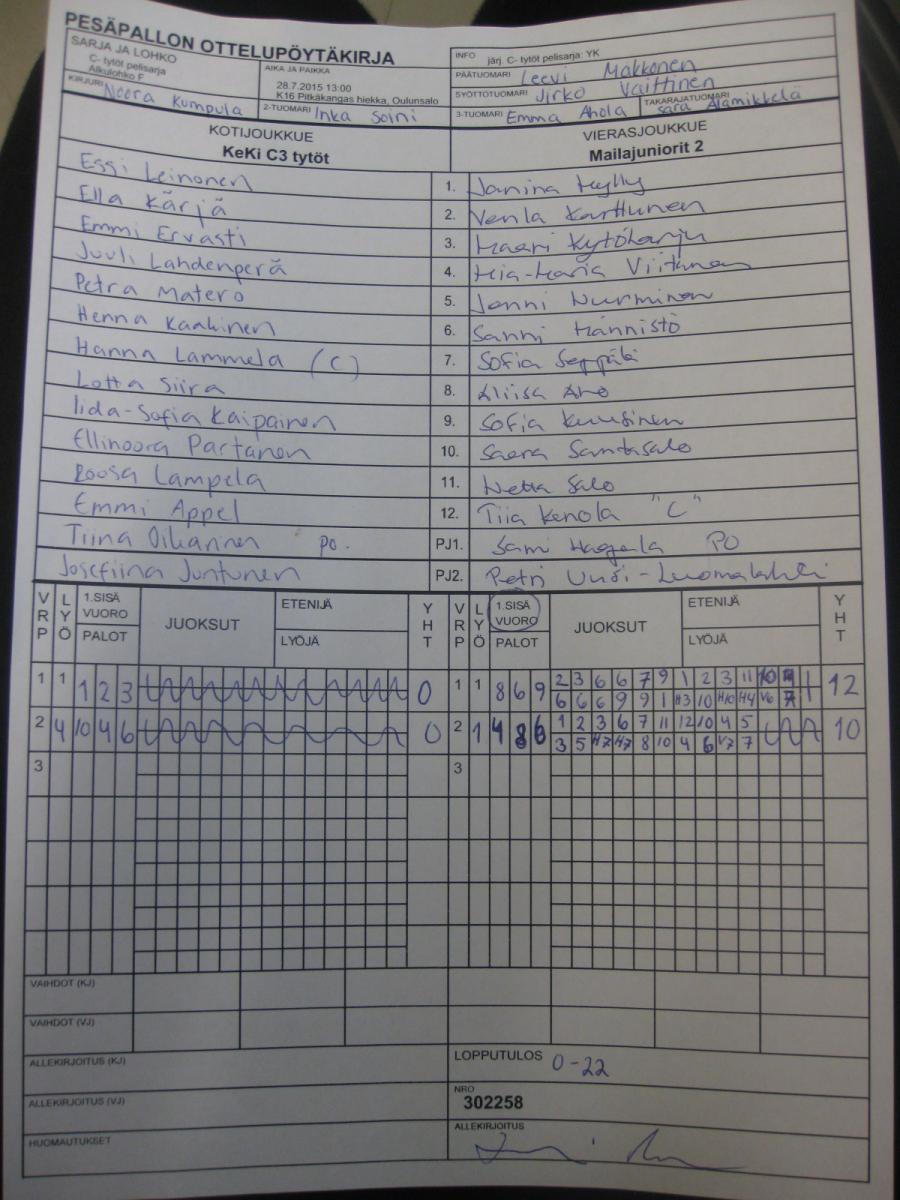 PESÄPALLON OTTELUPÖYTÄKIRJA
SARJA JA LOHKO
C- tytöt pelisarja
Alkulohko F
AIKA JA PAIKKA
28.7.2015 13:00
K16 Pitkäkangas hiekka, Oulunsalo
INFO järj. C- tytöt pelisarja: YK
PÄÄTUOMARI Leevi Makkonen
SYÖTTÖTUOMARI Jirko Vaittinen
KIRJURI Noora Kumpula
2-TUOMARI Inka Soini
3-TUOMARI Emma Ahola
TAKARAJATUOMARI Sara Alamikkelä
KOTIJOUKKUE
KeKi C3 tytöt
VIERASJOUKKUE
Mailajuniorit 2
Essi Leinonen 1. Janina Hylly
Ella Kärjä 2. Venla Karttunen
Emmi Ervasti 3. Maari Kytöharju
Juuli Lahdenperä 4. Mia-Maria Viitanen
Petra Matero 5. Jenni Nurminen
Henna Kaakinen 6. Sanni Männistö
Hanna Lammela (C) 7. Sofia Seppälä
Lotta Siira 8. Aliisa Aho
Iida-Sofia Kaipainen 9. Sofia Kuusinen
Ellinoora Partanen 10. Saara Santasalo
Roosa Lampela 11. Netta Salo
Emmi Appel 12. Tiia Kenola "C"
Tiina Oikarinen PO. PJ1. Sami PO
Josefiina Juntunen PJ2. Petri
VRP LYÖ 1.SISÄ VUORO PALOT JUOKSUT ETENIJÄ LYÖJÄ YHT VRP LYÖ 1.SISÄ VUORO PALOT JUOKSUT ETENIJÄ LYÖJÄ YHT
1 1 1 2 3 0 1 1 8 6 9 2 3 6 6 7 9 1 2 3 11 10 12
6 6 6 9 9 1 H3 10 H10 H4 V6 7
2 4 10 4 6 0 2 1 4 8 6 1 2 3 6 7 11 12 10 4 5 10
3 5 H7 H7 8 10 4 6 V7 7
3 3
VAIHDOT (KJ)
VAIHDOT (VJ)
ALLEKIRJOITUS (KJ)
LOPPUTULOS 0-22
ALLEKIRJOITUS (VJ)
NRO
302258
HUOMAUTUKSET
ALLEKIRJOITUS